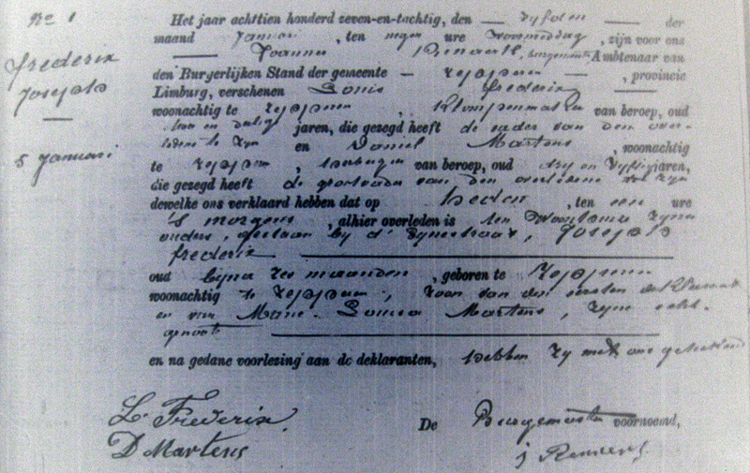 No 1
Frederix
Josephs
5 Januari
Het jaar achttien honderd zeven-en-tachtig, den vyfden der
maand Januari, ten negen ure voormiddag, zijn voor ons
Joannes Ambtenaar van
den Burgerlijken Stand der gemeente Zepperen, provincie
Limburg, verschenen Louis Frederix
woonachtig te Zepperen, klompenmaker van beroep, oud
en dertig jaren, die gezegd heeft de vader van den over-
ledene te zyn en Daniel Martens, woonachtig
te Zepperen, van beroep, oud dry en vyftig jaren,
die gezegd heeft de grootvader van den overledene te zyn
dewelke ons verklaard hebben dat op heden, ten een ure
's morgens, alhier overleden is ten woonhuize zyner
ouders, gestaan by d' Josephs
Frederix
oud byna zes maanden, geboren te Zepperen
woonachtig te Zepperen, zoon van den eersten
en van Marie Louisa Martens, zyne echt-
genoote
en na gedane voorlezing aan de deklaranten, hebben zy met ons geteekend
L. Frederix.
D Martens
De Burgemeester voornoemd,